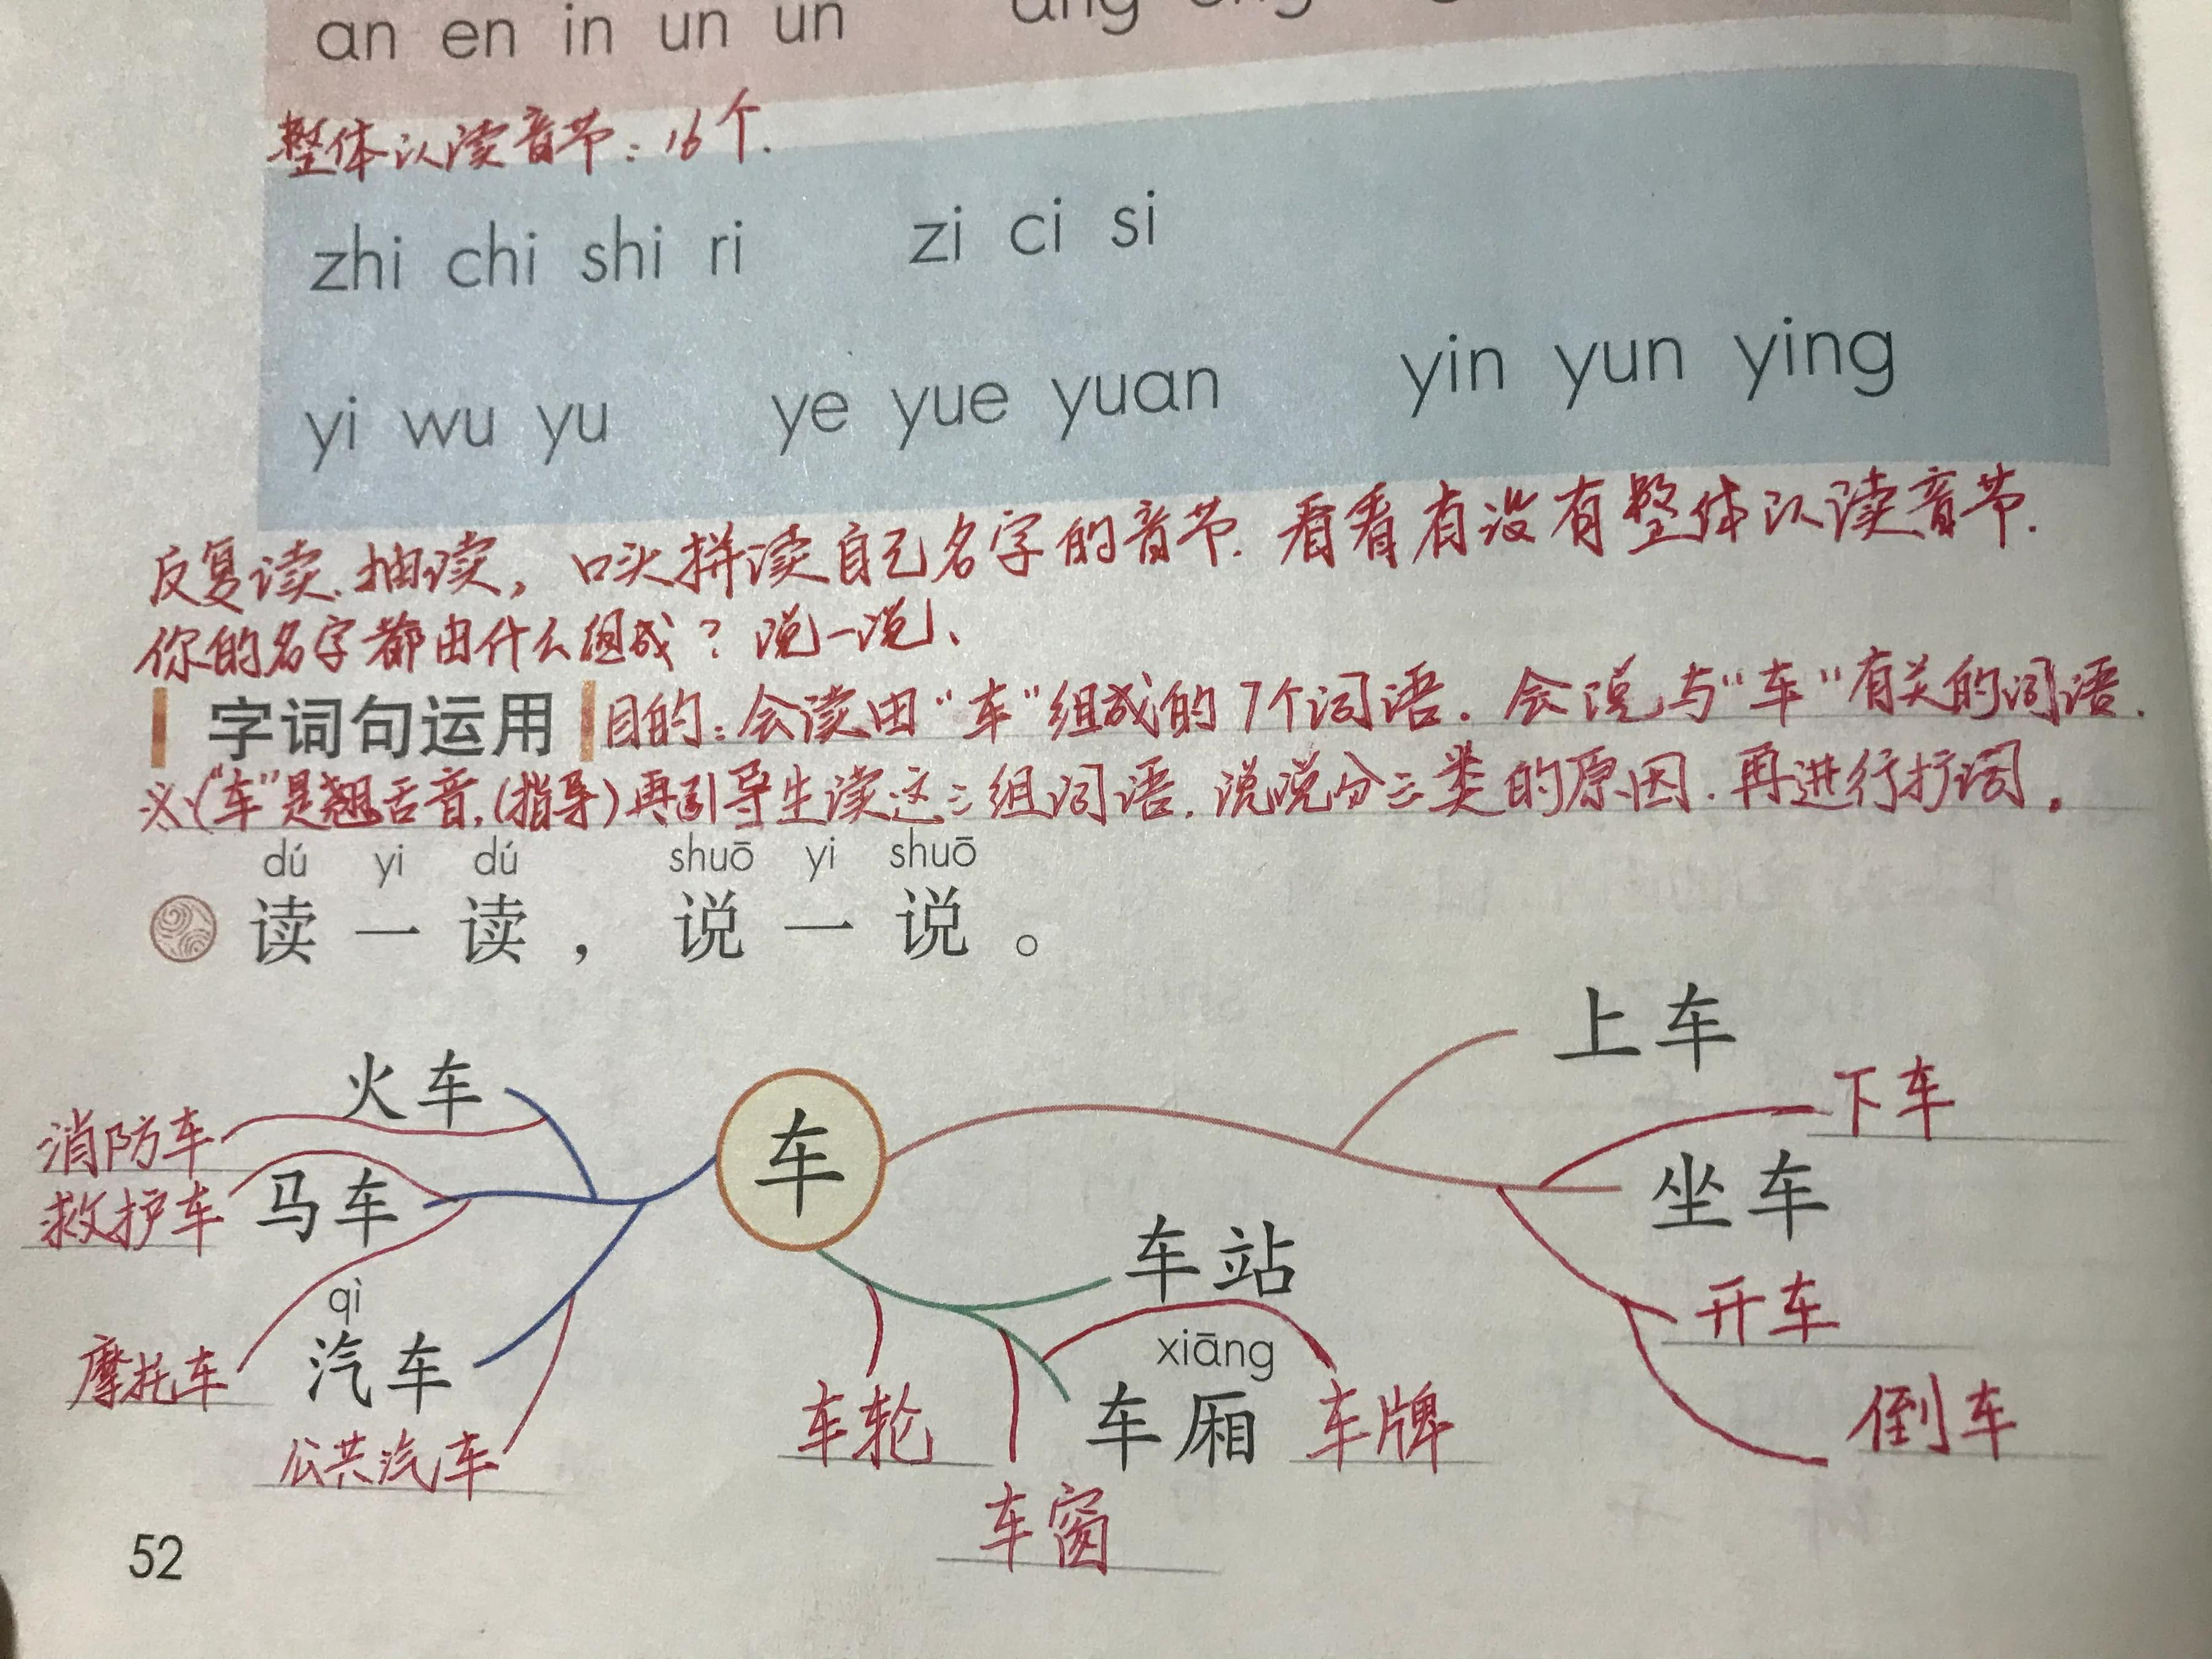 an en in un ün
整体认读音节：16个.
zhi chi shi ri zi ci si
yi wu yu ye yue yuan yin yun ying
反复读、抽读，口头拼读自己名字的音节.看看有没有整体认读音节.
你的名字都由什么组成？说一说、
字词句运用 目的：会读由“车”组成的7个词语。会说与“车”有关的词语.
“车”是翘舌音,(指导)再引导生读这三组词语.说说分三类的原因.再进行扩词。
dú yi dú shuō yi shuō
读一读，说一说。
上车
火车
下车
消防车
车
马车
坐车
救护车
车站
qì
开车
汽车
摩托车
xiāng
车轮
车厢
车牌
倒车
公共汽车
车窗
52